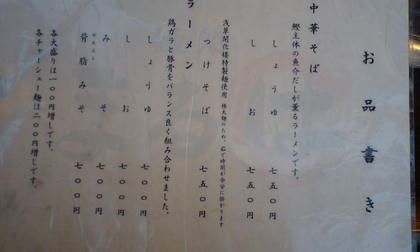 お品書き
中華そば
鰹主体の魚介だしが薫るラーメンです。
しょうゆ 七五〇円
しお 七五〇円
浅草開化楼特製麺使用 極太麺のため、茹で時間が余分に掛かります
つけそば 七五〇円
ラーメン
鶏ガラと豚骨をバランス良く組み合わせました。
しょうゆ 七〇〇円
しお 七〇〇円
みそ 七〇〇円
背脂みそ 七〇〇円
各大盛りは一〇〇円増しです。
各チャーシュー麺は二〇〇円増しです。